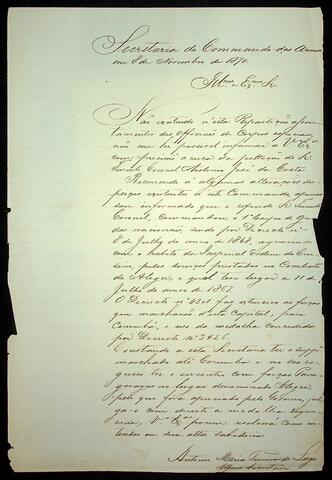 Secretaria do Commando das Armas
em 8 de Novembro de 1870.
Illmo e Exmo Sr.
Não existindo n'esta Repartição assen-
tamentos dos Officiaes de Corpos especiaes,
não me he possivel informar a Vª Exª
com precisão acerca da pretenção do Sr.
Tenente Coronel Antonio José da Costa.
Recorrendo á algumas alterações de
praças existentes n'este Commando,
sou informado que o referido Sr. Tenente
Coronel, Commandou o 1º Corpo de Guar-
das nacionaes, sendo por Decreto nº
8 de Julho do anno de 1868, agraciado
com o habito da Imperial Ordem do Cru-
seiro, pelos serviços prestados no Combate
do Alegre, o qual teve lugar a 11 de
Julho do anno de 1867.
O Decreto nº 4201 fez extensivo as forças
que marcharão d'esta Capital, para
Corumbá, o uso da medalha concedida
por Decreto nº 3926
Constando a esta Secretaria ter o supp.e
marchado até Corumbá, e no seo re-
gresso ter o encontro com forças Para-
guayas no lugar denominado Alegre,
feito que foi apreciado pelo Governo, jul-
ga-o com direito a medalha reque-
rida, Vª Exª porem resolverá como en-
tender em sua alta sabedoria
Antonio Maria
Secretario